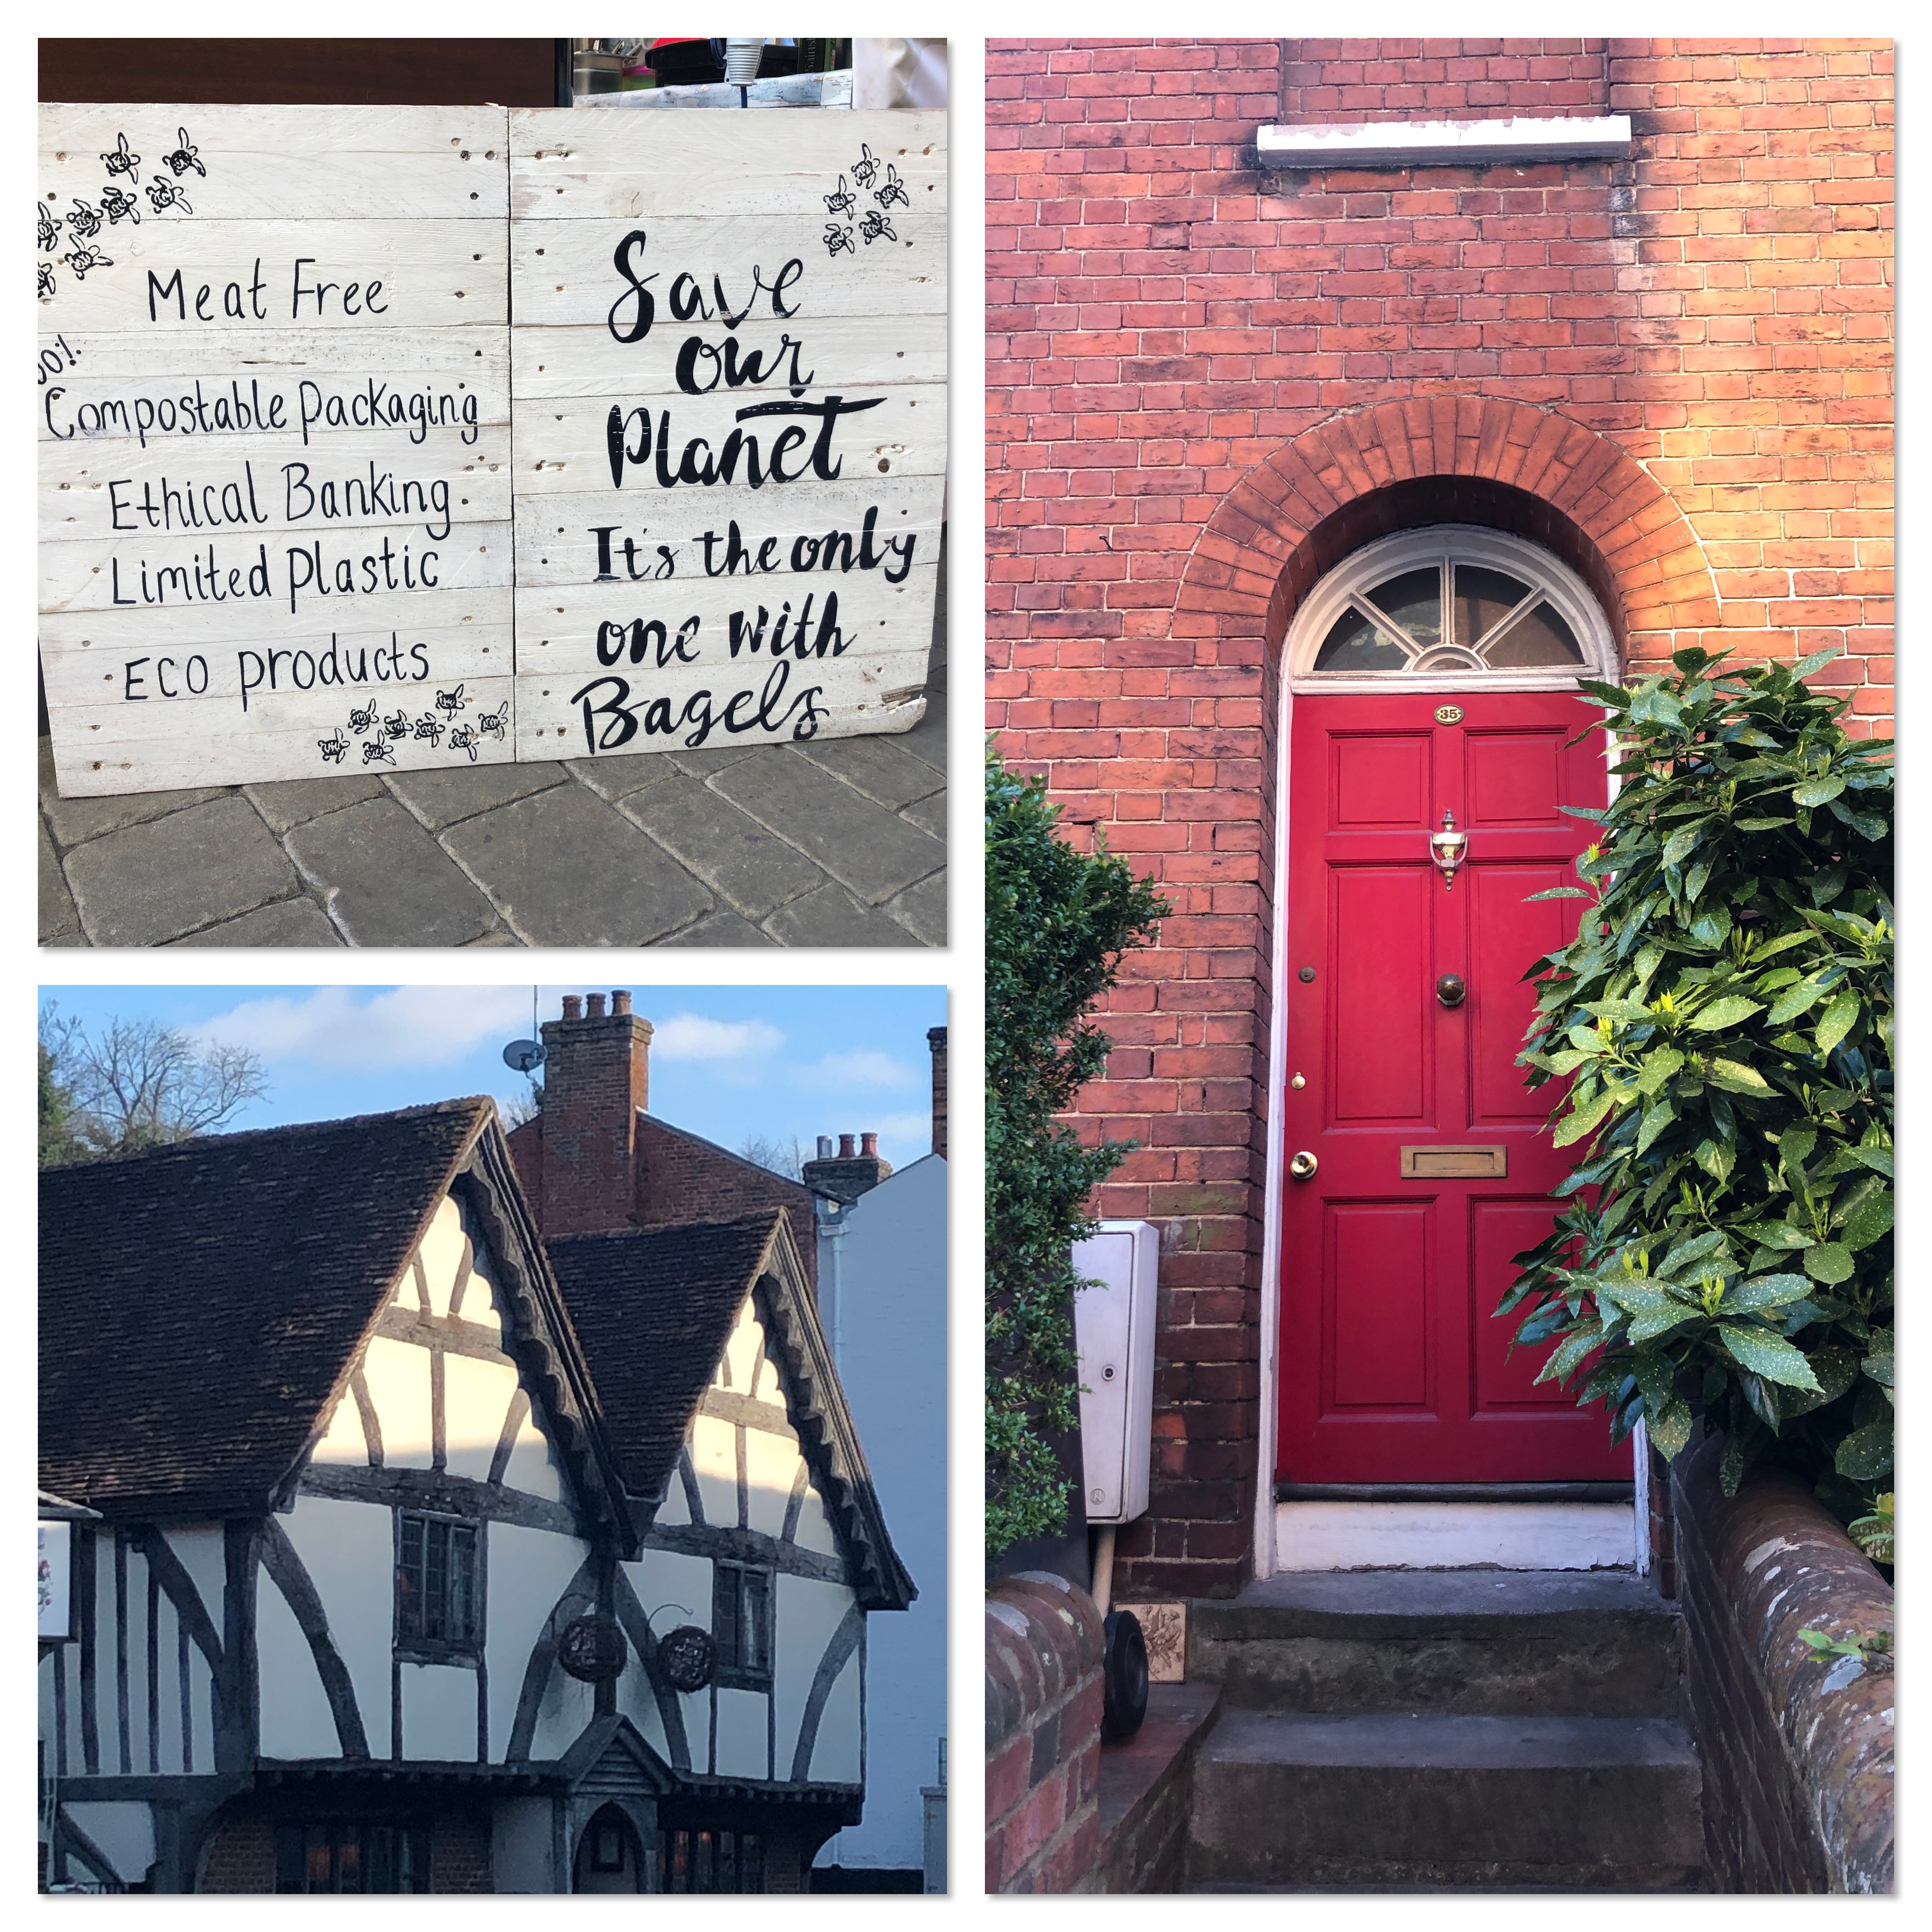 Meat Free
Compostable Packaging
Ethical Banking
Limited Plastic
Eco products
Save
our
Planet
It's the only
one with
Bagels
35